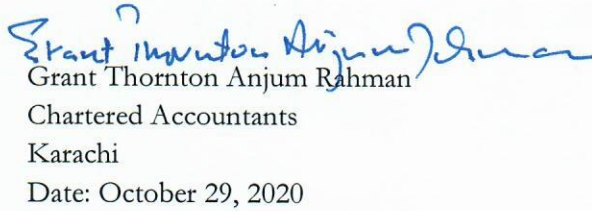 Grant Thornton Anjum Rahman
Grant Thornton Anjum Rahman
Chartered Accountants
Karachi
Date: October 29, 2020